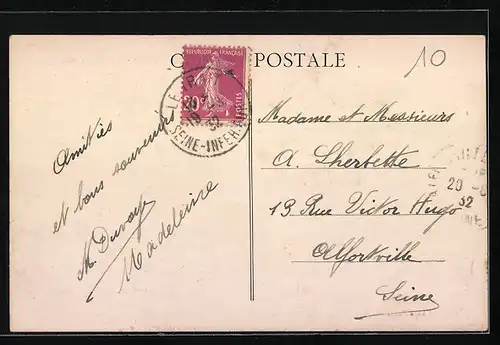 POSTALE
10
RÉPUBLIQUE FRANÇAISE
20c
POSTES
LE
20
19
32
SEINE-INFER
Amitiés
et bons souvenirs
M. Duvay
Madeleine
Madame et Messieurs
A. Lherbette
13 Rue Victor Hugo
Alfortville
Seine
20 -8
32